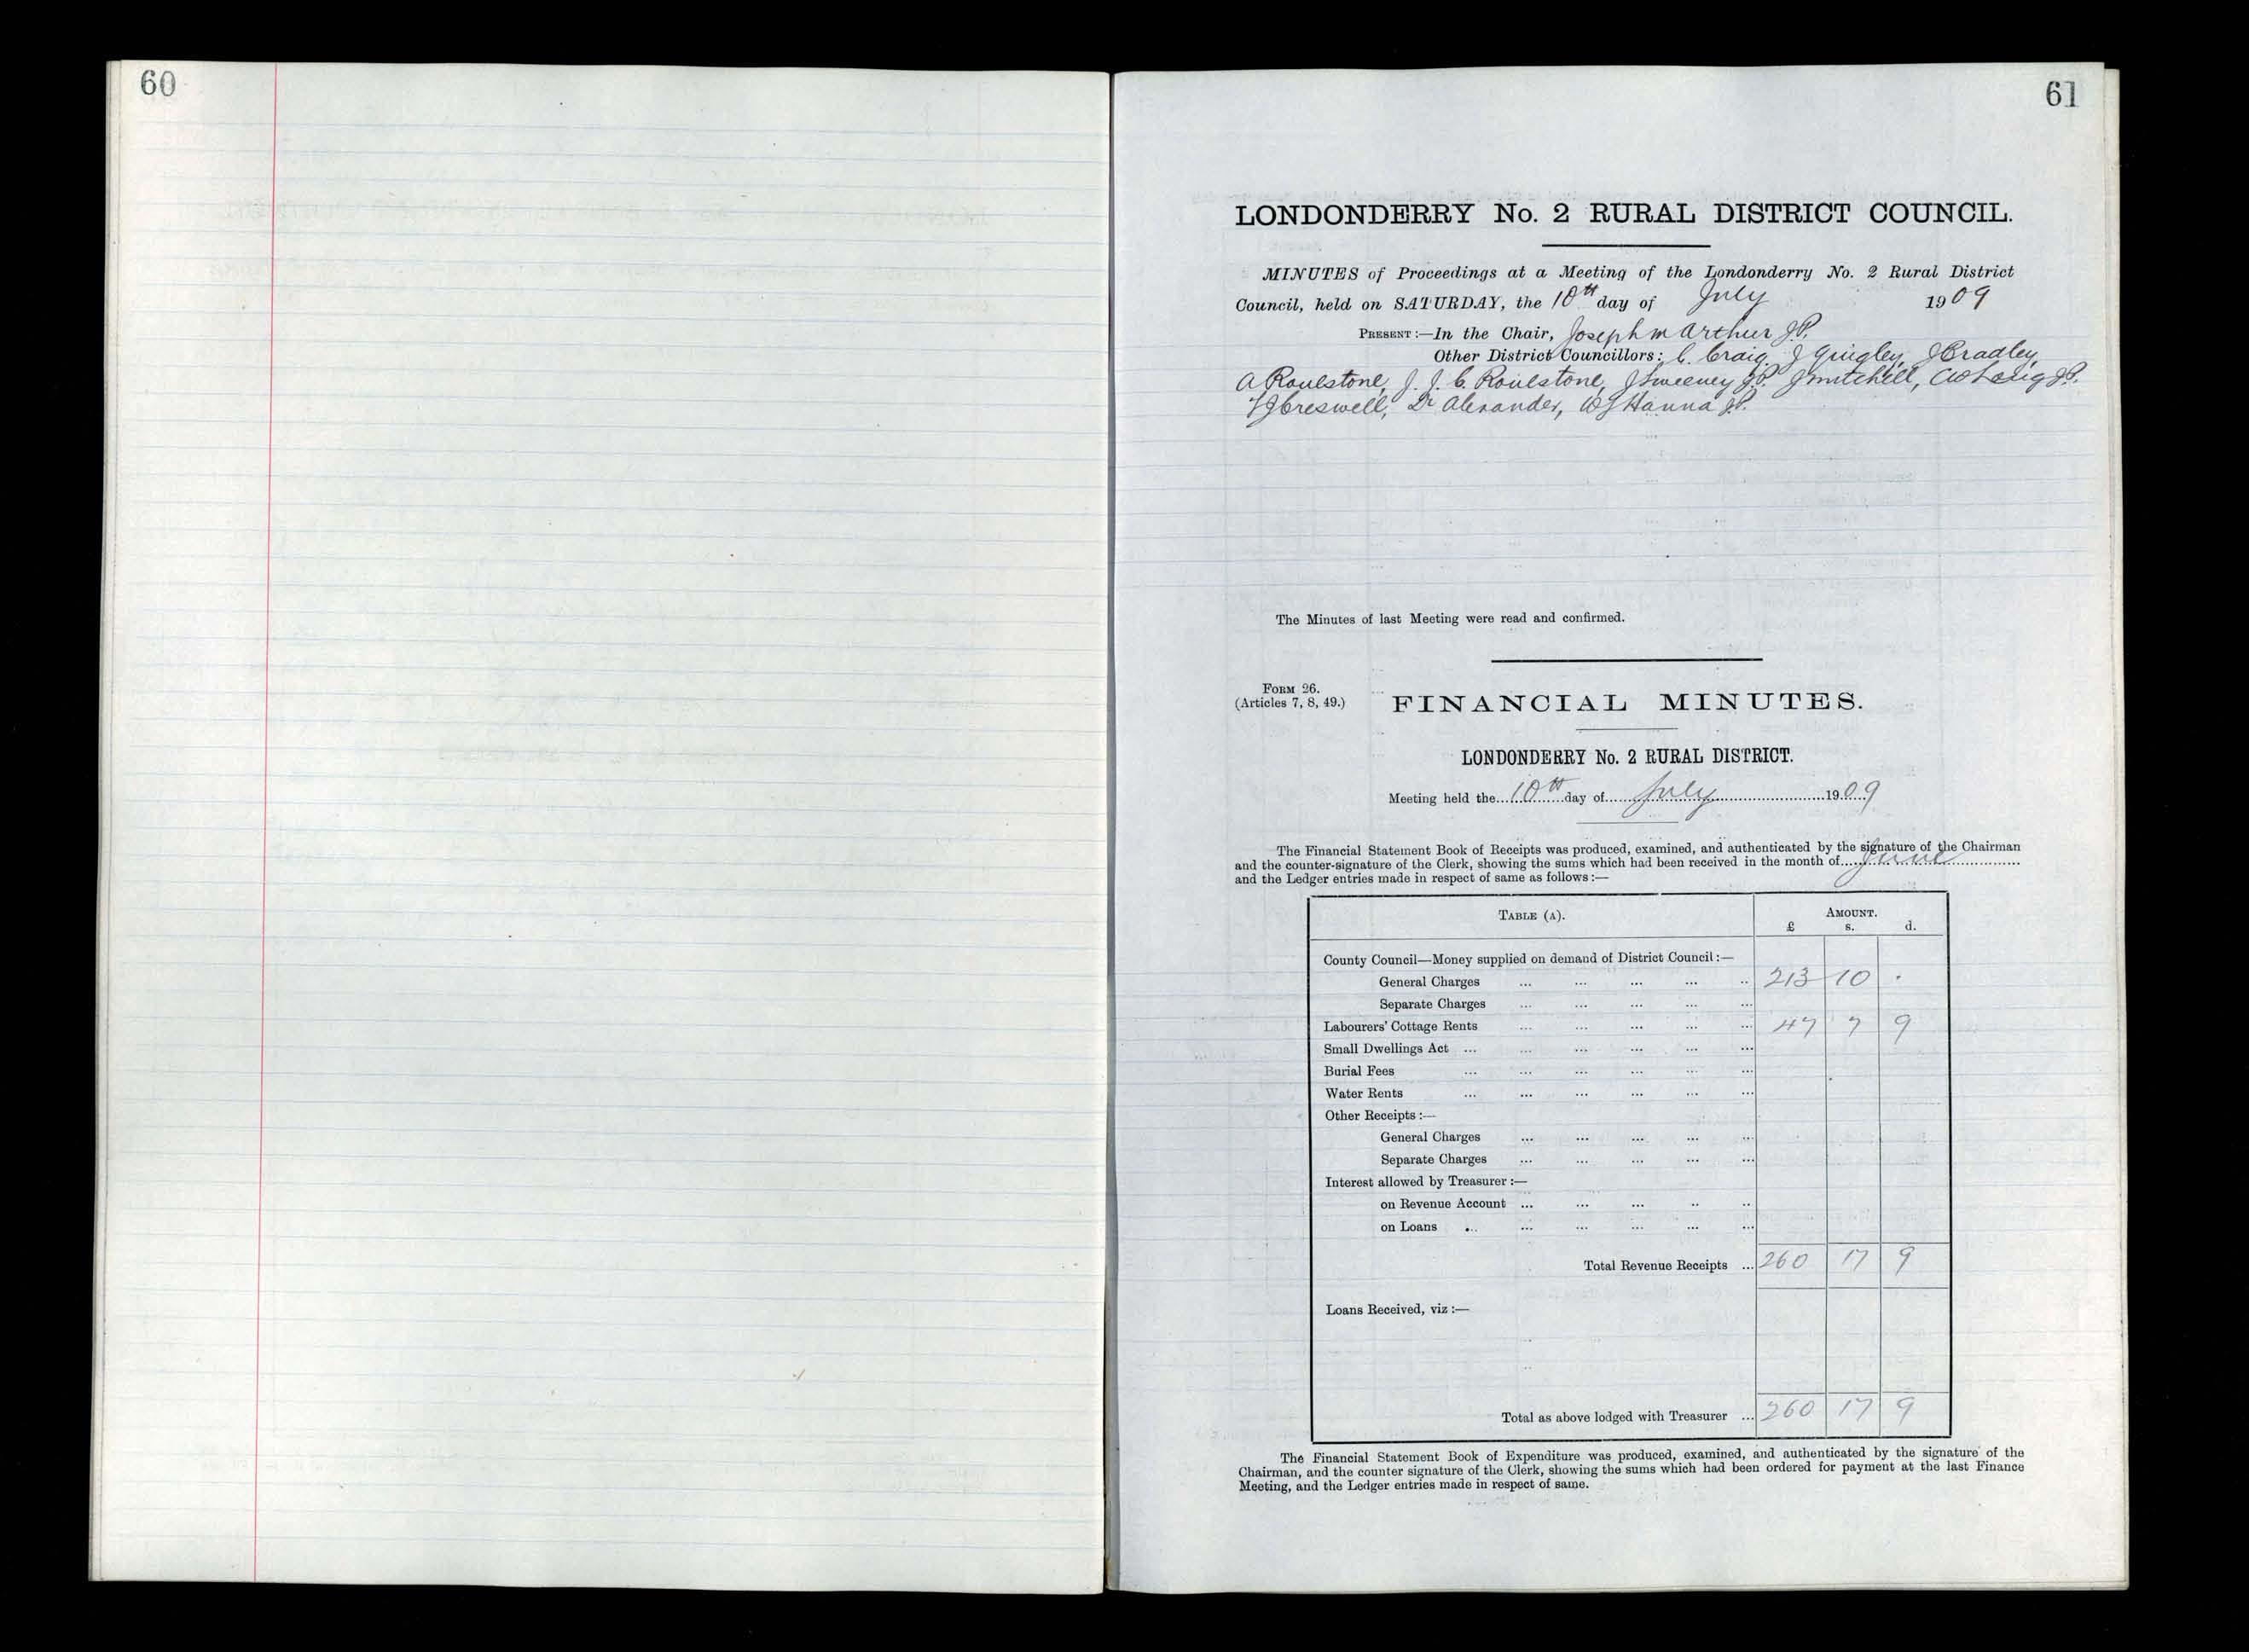 60
61
LONDONDERRY No. 2 RURAL DISTRICT COUNCIL.
MINUTES of Proceedings at a Meeting of the Londonderry No. 2 Rural District
Council, held on SATURDAY, the 10th day of July 1909
PRESENT:—In the Chair, Joseph McArthur J.P.
Other District Councillors: C. Craig, J Gringley, J Bradley,
A Roulstone, J. J. C. Roulstone, J Sweeney J.P. J Mitchell, J.P.
Creswell, Dr Alexander, W J Hanna J.P.
The Minutes of last Meeting were read and confirmed.
FORM 26.
(Articles 7, 8, 49.)
FINANCIAL MINUTES.
LONDONDERRY No. 2 RURAL DISTRICT.
Meeting held the 10th day of July 1909
The Financial Statement Book of Receipts was produced, examined, and authenticated by the signature of the Chairman
and the counter-signature of the Clerk, showing the sums which had been received in the month of June
and the Ledger entries made in respect of same as follows:—
TABLE (A). AMOUNT.
£ s. d.
County Council—Money supplied on demand of District Council:—
General Charges ... ... ... ... .. 213 10 .
Separate Charges ... ... ... ... ...
Labourers' Cottage Rents ... ... ... ... ... 47 7 9
Small Dwellings Act ... ... ... ... ... ...
Burial Fees ... ... ... ... ... ...
Water Rents ... ... ... ... ... ...
Other Receipts:—
General Charges ... ... ... ... ...
Separate Charges ... ... ... ... ...
Interest allowed by Treasurer:—
on Revenue Account ... ... ... .. ..
on Loans ... ... ... ... ... ...
Total Revenue Receipts ... 260 17 9
Loans Received, viz:—
Total as above lodged with Treasurer ... 260 17 9
The Financial Statement Book of Expenditure was produced, examined, and authenticated by the signature of the
Chairman, and the counter signature of the Clerk, showing the sums which had been ordered for payment at the last Finance
Meeting, and the Ledger entries made in respect of same.